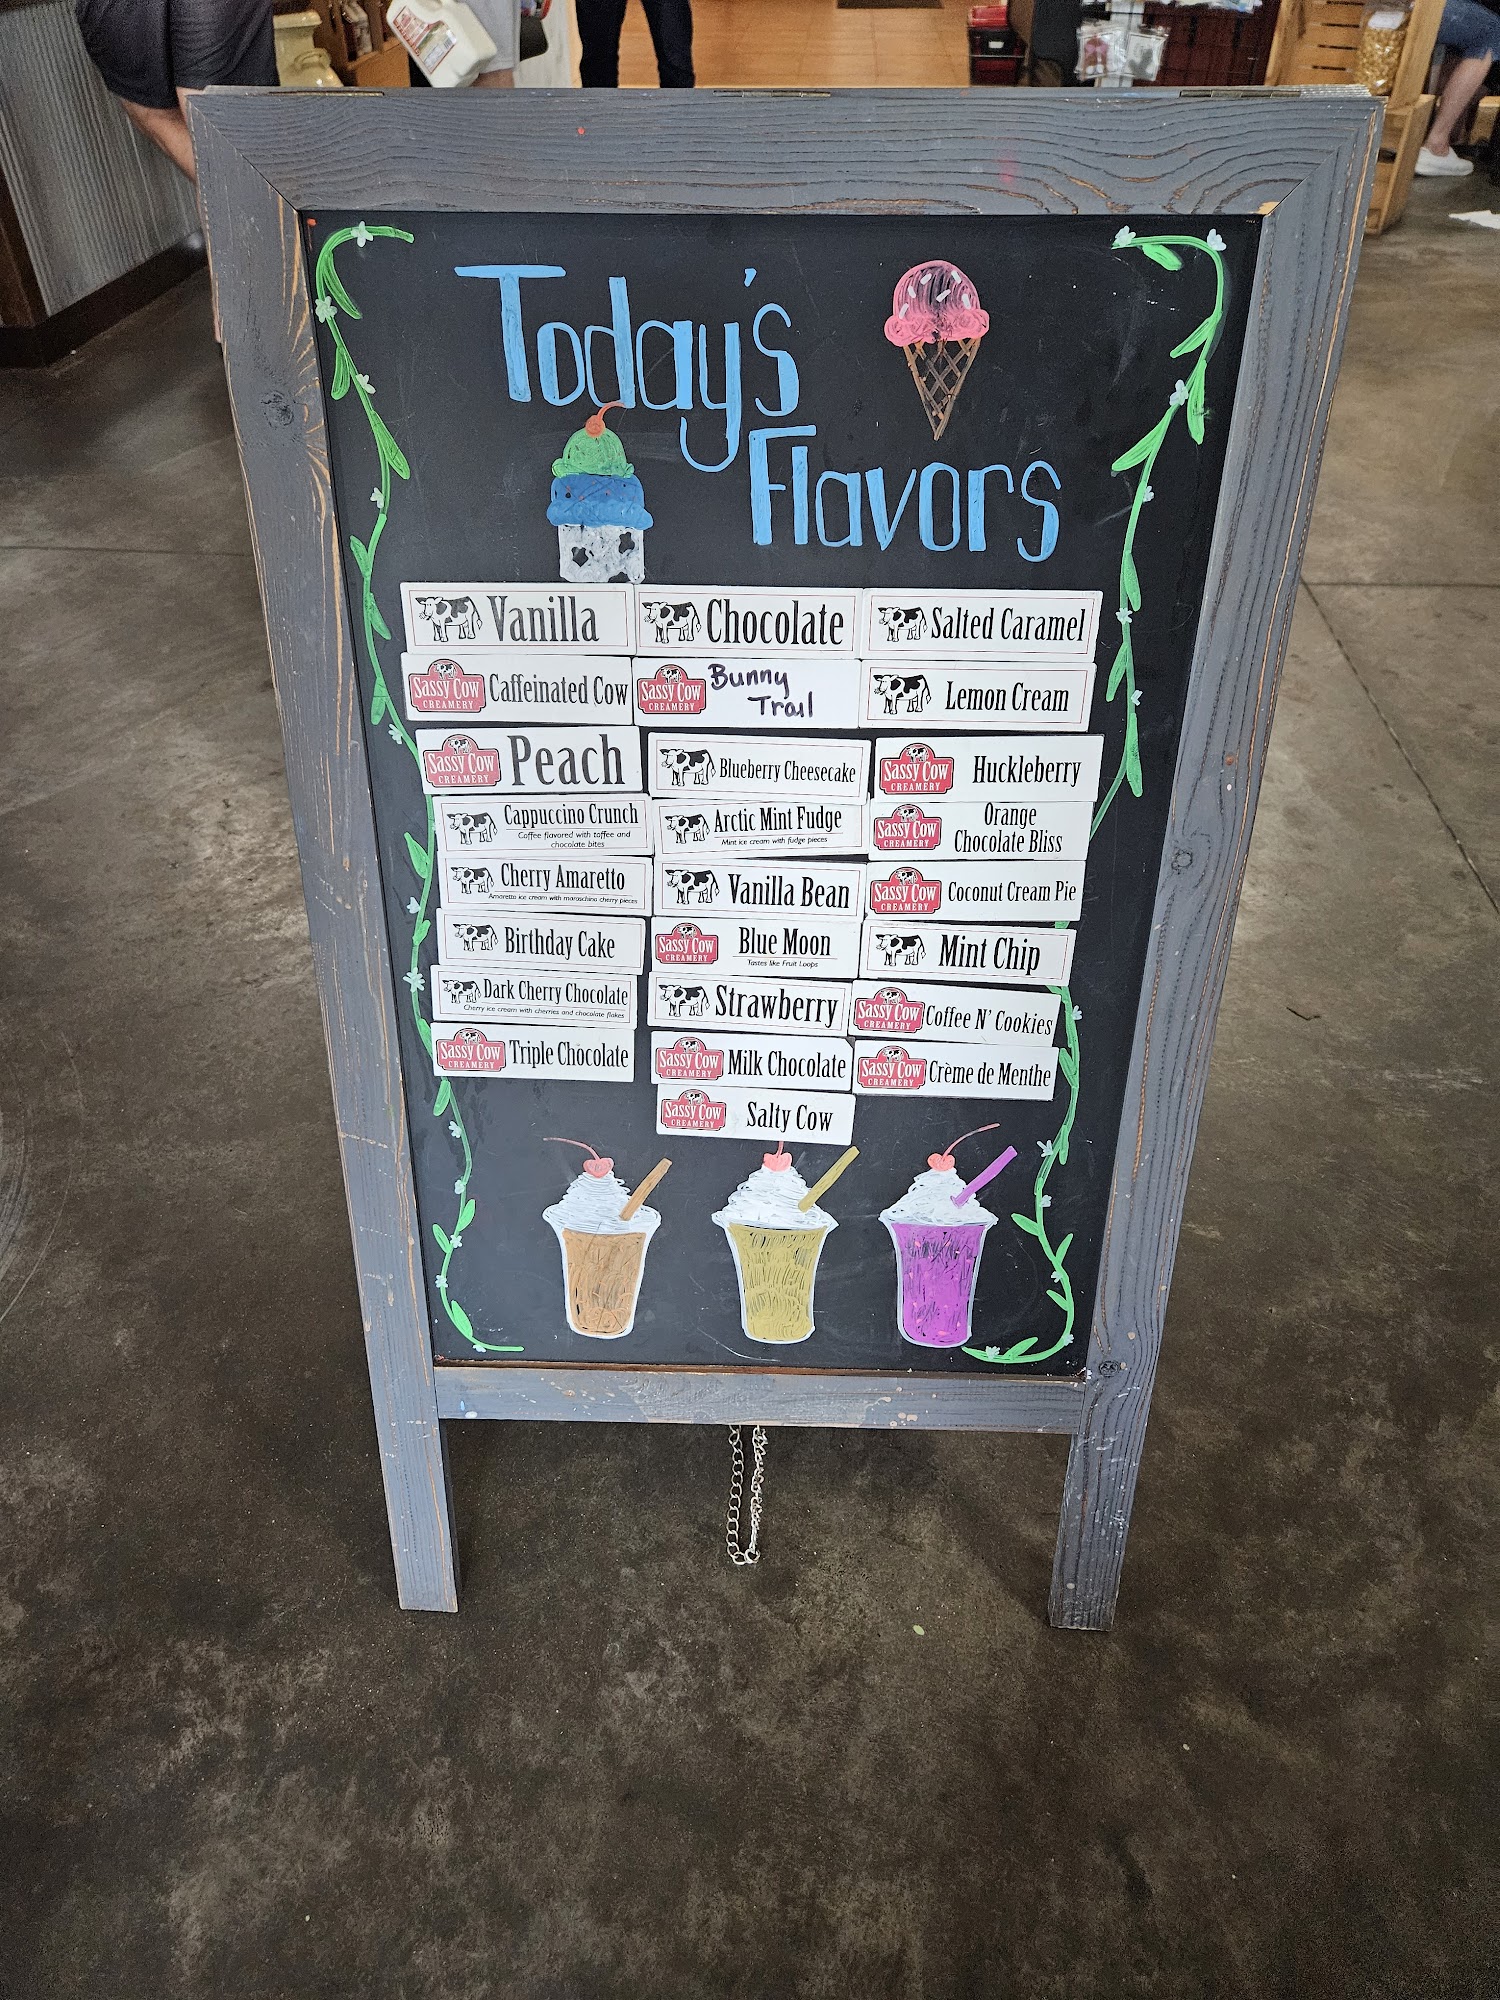 Today's
Flavors
Vanilla
Chocolate
Salted Caramel
Sassy Cow
CREAMERY
Caffeinated Cow
Sassy Cow
CREAMERY
Bunny
Trail
Lemon Cream
Sassy Cow
CREAMERY
Peach
Blueberry Cheesecake
Sassy Cow
CREAMERY
Huckleberry
Cappuccino Crunch
Coffee flavored with toffee and
chocolate bites
Arctic Mint Fudge
Mint ice cream with fudge pieces
Sassy Cow
CREAMERY
Orange
Chocolate Bliss
Cherry Amaretto
Amaretto ice cream with maraschino cherry pieces
Vanilla Bean
Sassy Cow
CREAMERY
Coconut Cream Pie
Birthday Cake
Sassy Cow
CREAMERY
Blue Moon
Tastes like Fruit Loops
Mint Chip
Dark Cherry Chocolate
Cherry ice cream with cherries and chocolate flakes
Strawberry
Sassy Cow
CREAMERY
Coffee N' Cookies
Sassy Cow
CREAMERY
Triple Chocolate
Sassy Cow
CREAMERY
Milk Chocolate
Sassy Cow
CREAMERY
Crème de Menthe
Sassy Cow
CREAMERY
Salty Cow